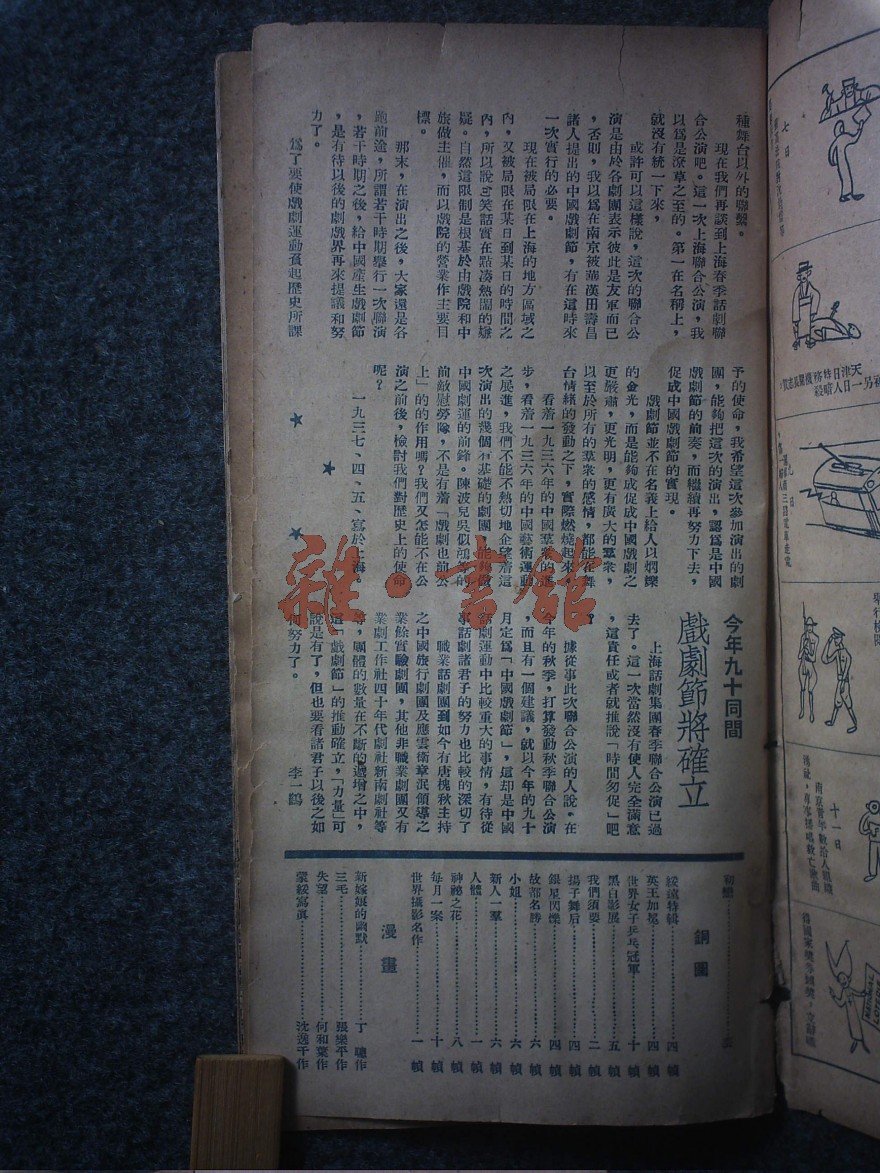 種舞台以外的聯繫。
現在我們再談到上海春季話劇聯
合公演吧。這一次上海聯合公演，我
以爲是潦草之至的。第一在名稱上，
就沒有統一下來，
或許可以這樣說，這次的聯合公
演是由於各劇團表示彼此是友軍而已
，否則，我以爲在南京被華漢田壽昌
諸人提出的中國戲劇節，有在這時來
一次實行的必要。
現在被局限在上海的地方區域之
內，又被局限在某日到某日的時間之
內，所以說句笑話實在點凑熱鬧的嫌
疑。自然這限制是根基於由戲院和中
旅做主催，而以戲院的營業作主要目
標。
那末，在演出之後，大家還是各
跑前途，所謂若干時期舉行一次聯演
，若干時期之後，給中國產生戲劇節
，是有待以後的劇戲界再來提議和努
力了。
爲了要使戲劇運動負起歷史所課
予的使命，我希望這次參加演出的劇
團，能夠把這次的演出，認爲是中國
戲劇節的前奏，而繼續再努力下去，
促成中國戲劇節的實現。
戲劇節並不在名義上給人以炳爍
的金光，而是能夠成促成中國戲劇之
更嚴肅，更光明，更有廣大的羣衆，
以至於所有的羣衆的感情，都能在舞
台情緒的發動之下，實際燃燒起來。
看着一九三六年的中國羣衆的進
步，看着一九三六年的中國藝術運動
之展進，我們不能不熱切地企望着這
次演出的幾個有基礎的劇團，能夠做
中國劇運的前鋒。陳波兒吳似鴻等的
前敵慰勞隊，不是有着「戲劇也前公
上」的的作用嗎？我們又怎能不在公
演之前後，檢討我們對歷史上的使命
呢？
一九三七、四、五、寫於上海
今年九十同間
戲劇節將確立
上海話劇集團春季聯合公演已過
去了。這一次當然沒有使人完全滿意
，這責任或者就推說「時間匆促」吧
？
據從事此次聯合公演的人說，在
今年的秋季，打算發動秋季聯合公演
，而且有一個建議，就以今年的九十
月定爲「中國戲劇節」，這却是中國
話劇運動中比較重大的事情，有待從
事話劇諸君子的努力也比較的深切了
職業話劇團到如今有唐槐秋主持
之中國旅行劇團及應雲衛章泯領導之
業餘實驗劇團，其他非職業劇團又有
業劇工作社四十年代劇社新南劇社等
等，團體的數量在不斷的遞增之中，
這「戲劇節」的推動確立，「力量」可
說是有了，但也要看諸君子以後之如
何努力了。
李一鶴
銅圖
綏遠特輯 四幀
英王加冕 四幀
世界女子乒乓冠軍 十幀
黑白影展 五幀
我們須要 二幀
揚子舞后 四幀
銀星閃爍 四幀
故都名勝 六幀
小姐 六幀
新人一羣 六幀
人體 一幀
神祕之花 八幀
每月一案 十幀
世界攝影名作 一幀
漫畫
新嫁娘的幽默 丁聰作
三毛 張樂平作
失望 何和葉作
蒙綏寫眞 沈逸千作
雜·書館
七日
十一日